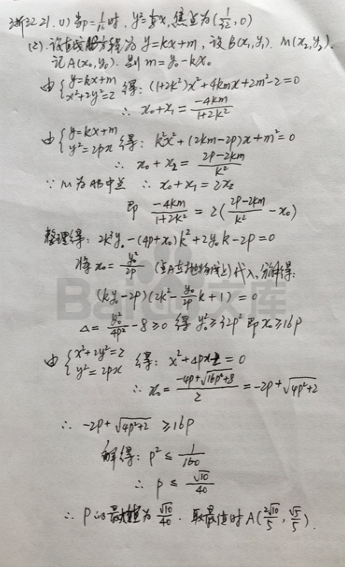 浙江21. (1) 当p=1/16时, y²=1/8x, 焦点为(1/32, 0)
(2) 设直线方程为 y=kx+m, 设B(x₁,y₁). M(x₂,y₂).
记A(x₀,y₀). 则 m=y₀-kx₀.
由{y=kx+m x²+2y²=2 得: (1+2k²)x²+4kmx+2m²-2=0
∴ x₀+x₁=-4km/1+2k²
由{y=kx+m y²=2px 得: k²x²+(2km-2p)x+m²=0
∴ x₀+x₂=2p-2km/k²
∵ M为AB中点 ∴ x₀+x₁=2x₂
即 -4km/1+2k²=2(2p-2km/k²-x₀)
整理得: 2k³y₀-(4p+x₀)k²+2y₀k-2p=0
将x₀=y₀²/2p (点A在抛物线上)代入, 分解得:
(ky₀-2p)(2k²-y₀/2p k+1)=0
Δ=y₀²/4p²-8≥0 得 y₀²≥32p² 即x₀≥16p
由{x²+2y²=2 y²=2px 得: x²+4px-2=0
∴ x₀=-4p+√16p²+8/2=-2p+√4p²+2
∴ -2p+√4p²+2≥16p
解得: p²≤1/160
∴ p≤√10/40
∴ p的最大值为√10/40. 取最值时A(2√10/5, √5/5).